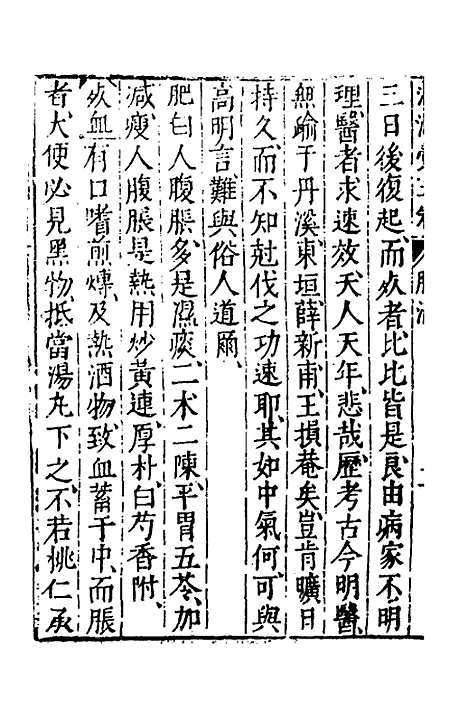 三日後復起、而死者比比皆是、良由病家不明
理、醫者求速效、夭人天年、悲哉、歷考古今明醫、
無踰于丹溪東垣薛新甫、王損菴矣、豈肯曠日
持久、而不知尅伐之功速耶、其如中氣何、可與
高明言、難與俗人道爾、
肥白人腹脹、多是濕痰、二术二陳、平胃五苓、加
減、瘦人腹脹、是熱、用炒黃連、厚朴、白芍香附、
瘀血、有口嗜煎爆、及熱酒物、致血蓄于中、而脹
者、大便必見黑物、抵當湯丸下之、不若桃仁承